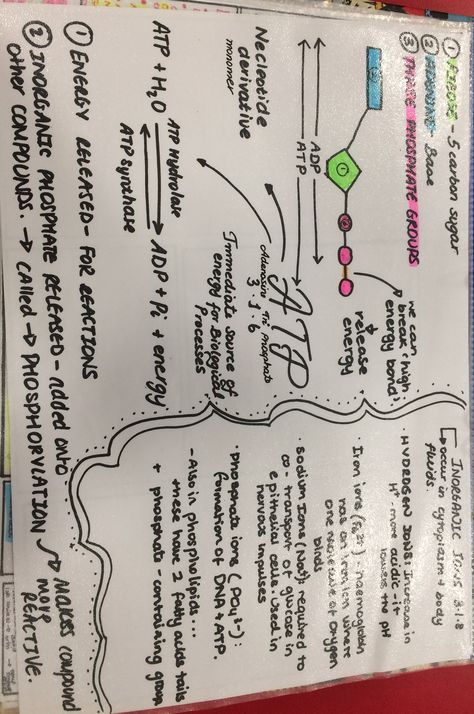 ① RIBOSE - 5 carbon sugar
② ADENINE - Base
③ THREE PHOSPHATE GROUPS
we can
break ↑ high
energy bond
+
release
energy
②
①
③
ADP
ATP
Necleotide
derivative
monomer
ATP
Adenosine Tri Phosphate
3.1.6
Immediate Source of
energy for Biological
Processes
ATP + H₂O ⇌ ADP + Pi + energy
ATP Hydrolase
ATP synthase
① ENERGY RELEASED - FOR REACTIONS
② INORGANIC PHOSPHATE RELEASED - Added onto
other COMPOUNDS. → called → PHOSPHORYLATION → Makes compound
more
REACTIVE.
INORGANIC IONS 3.1.8
↳ occur in cytoplasm + body
fluids.
· HYDROGEN IONS: Increase in
H⁺ - more acidic - it
lowers the pH
· Iron ions (Fe²⁺) - haemoglobin
has an iron ion where
one molecule of oxygen
binds
· Sodium Ions (Na⁺) required to
co-transport of glucose in
epithelial cells. Used in
nervous impulses
· Phosphate ions (PO₄³⁻):
formation of DNA + ATP.
- Also in phospholipids...
these have 2 fatty acids tails
+ phosphate - containing group